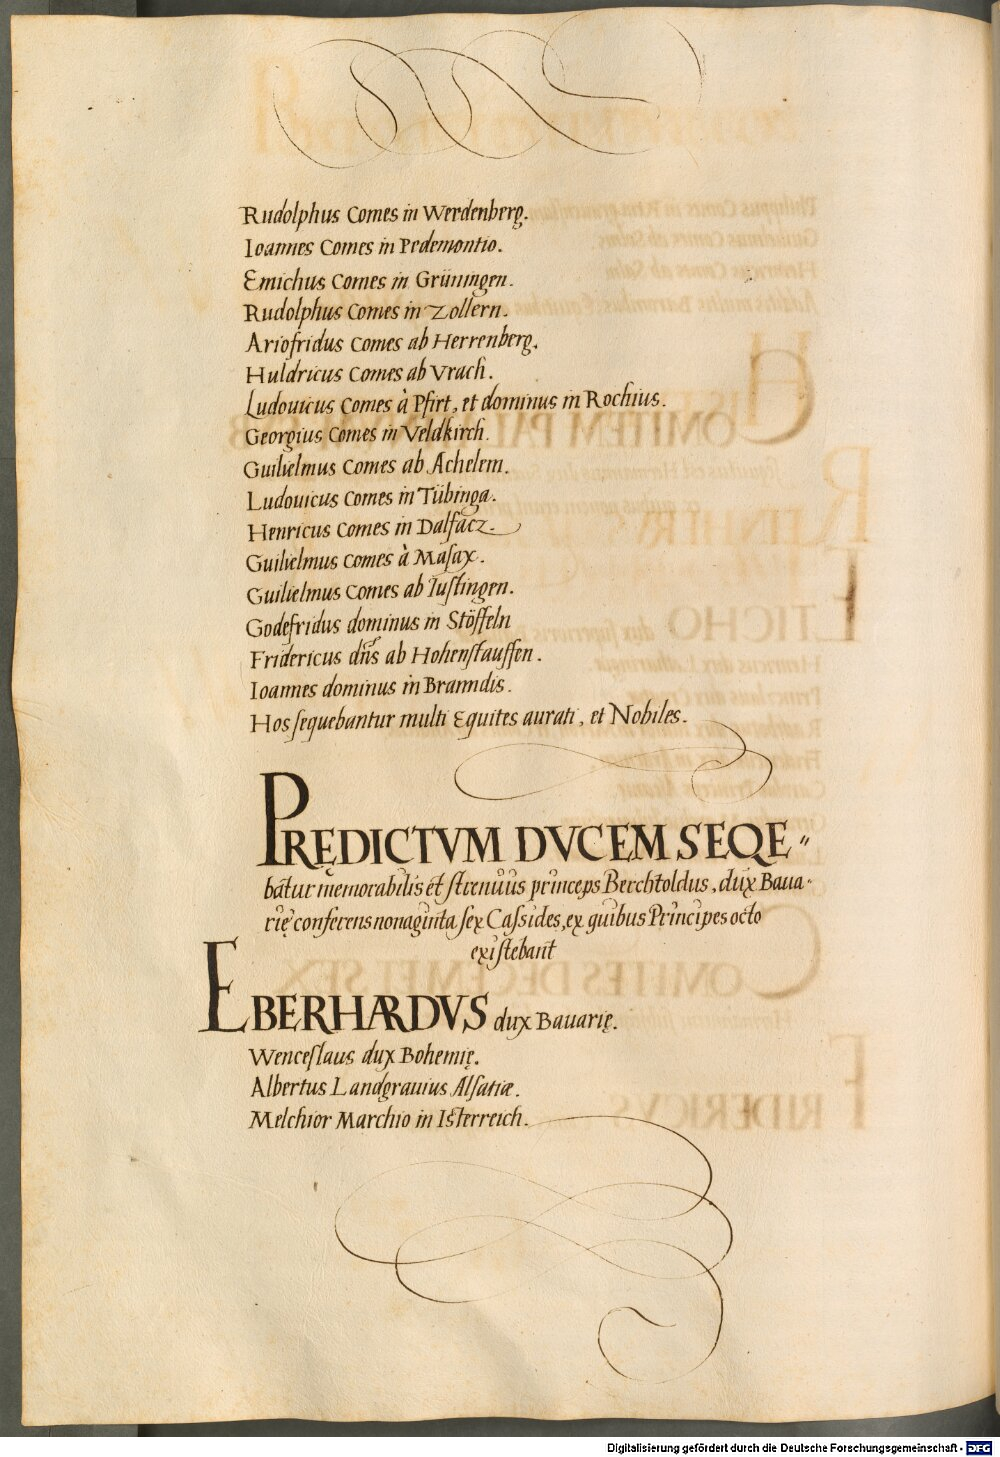 Rudolphus Comes in Werdenberg.
Ioannes Comes in Pedemontio.
Emichus Comes in Grüningen.
Rudolphus Comes in Zollern.
Ariofridus Comes ab Herrenberg.
Huldricus Comes ab Vrach.
Ludouicus Comes à Pfirt, et dominus in Rochius.
Georgius Comes in Veldkirch.
Guilielmus Comes ab Achelem.
Ludouicus Comes in Tübinga.
Henricus Comes in Dalfacz.
Guilielmus Comes à Masax.
Guilielmus Comes ab Iustingen.
Godefridus dominus in Stöffeln
Fridericus dn̄s ab Hohenstauffen.
Ioannes dominus in Branndis.
Hos sequebantur multi Equites aurati, et Nobiles.
PRĘDICTVM DVCEM SEQE"
batur memorabilis et strenuus princeps Berchtoldus, dux Baua-
rię conferens nonaginta sex Cassides, ex quibus Principes octo
existebant
EBERHARDVS dux Bauarię.
Wenceslaus dux Bohemię.
Albertus Landgrauius Alsatiæ.
Melchior Marchio in Isterreich.
Digitalisierung gefördert durch die Deutsche Forschungsgemeinschaft - DFG